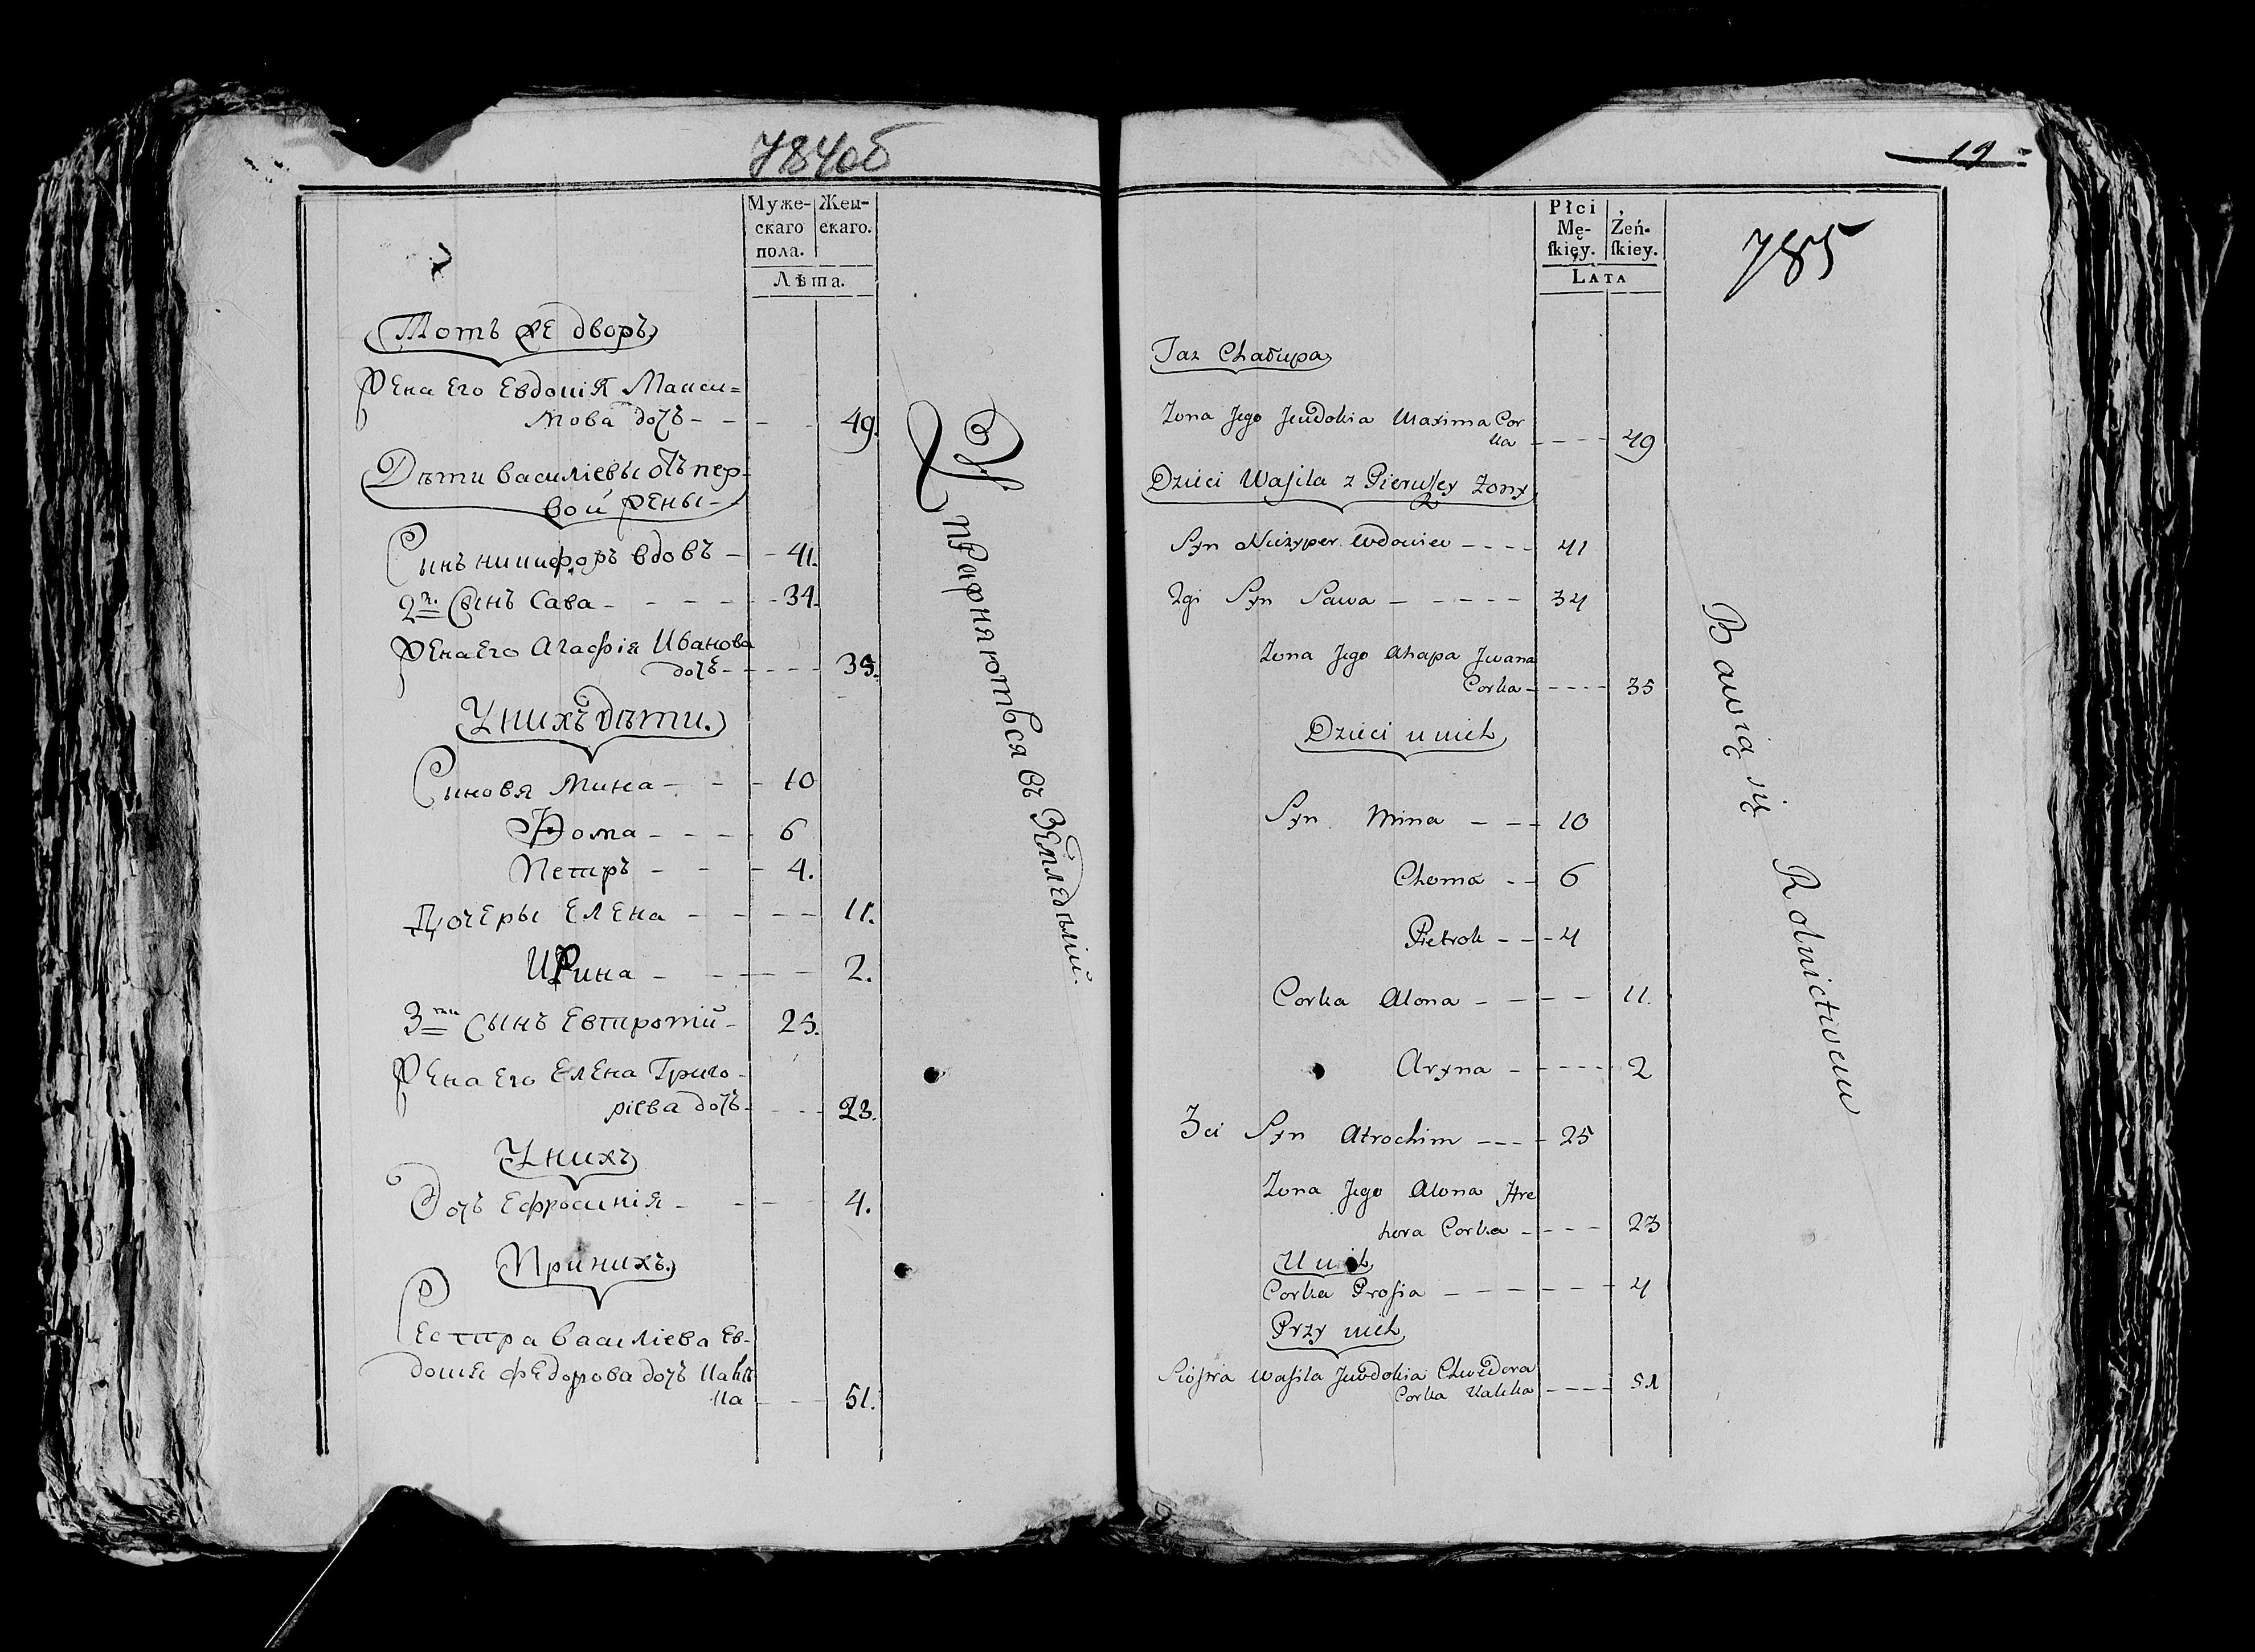 784об
Муже-
скаго
пола.
Жен-
скаго.
Лѣта.
Тотъ же дворъ
Жена Его Евдокія Макси=
мова дочъ - - - - 49.
Дѣти василіевы отъ пер-
вой жены -
Синъ никифоръ вдовъ - - 41.
2й. Сынъ Сава - - - - - 34.
Жена Его Агафія Иванова
дочъ - - - - - 35.
У нихъ дѣти.
Синовя Мина - - - 10
Фома - - - - 6
Петръ - - - 4.
Дочеры Елена - - - - - 11.
Ирина - - - - - 2.
3тіи Сынъ Евтротій - 25.
Жена Его Елена Григо-
ріева дочъ - - - - 23.
У нихъ
Дочъ Ефросинія - - - - 4.
При нихъ.
Сестра василіева Ев-
докіе Федорова дочъ
- - - 51.
Упражняються въ Земледѣліи.
19
785
Płci
Mę-
ſkięy.
Żeń-
ſkiey.
LATA
Taz Chałupa
Zona Jego Jeudokia Maxima Cor
ka - - - - 49
Dzieci Waſila z Pierwſey Zony
Syn Niczyper Wdowiec - - - - 41
2gi Syn Sawa - - - - - - 34
Zona Jego Ahapa Jwana
Corka - - - - - 35
Dzieci u nich
Syn Mina - - - 10
Choma - - 6
Pietrok - - - 4
Corka Alona - - - - 11.
Aryna - - - - - 2
3ci Syn Atrochim - - - - 25
Zona Jego Alona Hre
hora Corka - - - - 23
U nich
Corka Proſia - - - - - - - 4
Przy nich
Sioſtra Waſila Jewdokia Chwedora
Corka Kaleka - - - - 51
Bawią się Rolnictwem